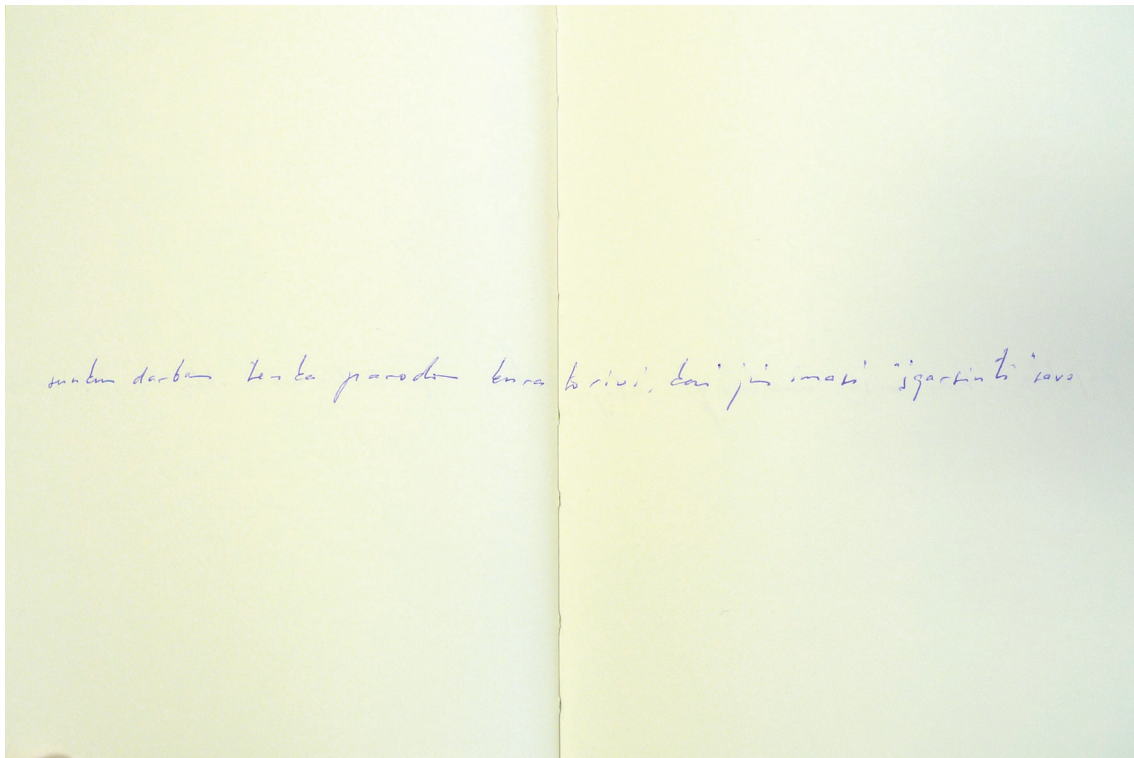 sunkus darbas tenka parodos kuratoriui, kai jis imasi "įgarsinti" savo